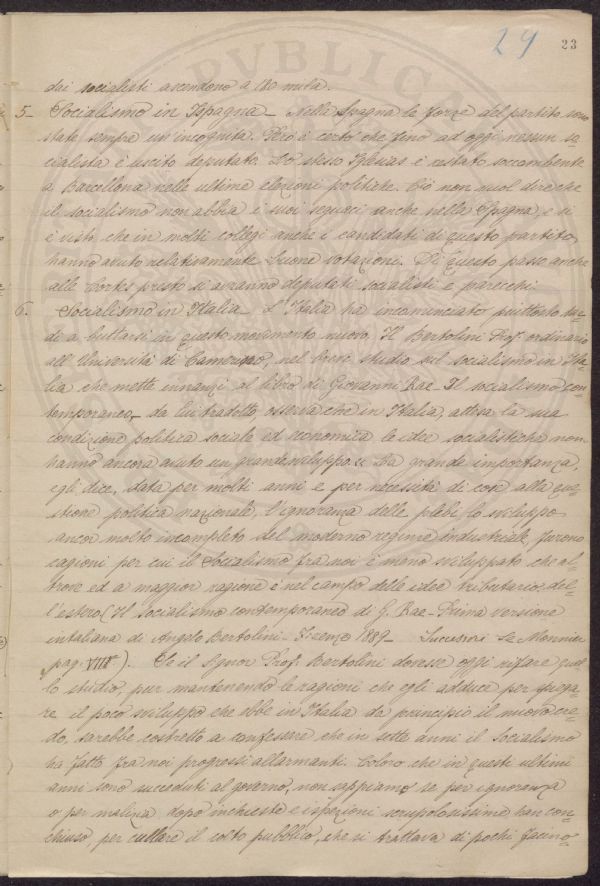 24
23
dei socialisti ascendono a 180 mila.
5- Socialismo in Ispagna - Nella Spagna le forze del partito sono
state sempre un'incognita. Però è certo che fino ad oggi nessun so-
cialista è uscito deputato. Lo stesso Iglesias è restato soccombente
a Barcellona nelle ultime elezioni politiche. Ciò non vuol dire che
il socialismo non abbia i suoi seguaci anche nella Spagna, e si
è visto che in molti collegi anche i candidati di questo partito
hanno avuto relativamente buone votazioni. Di questo passo anche
alle Cortes presto si avranno deputati socialisti e parecchi.
6. Socialismo in Italia - L'Italia ha incominciato piuttosto tar-
di a buttarsi in questo movimento nuovo. Il Bertolini Prof. ordinario
all'Università di Camerino, nel breve studio sul socialismo in Ita-
lia che mette innanzi al libro di Giovanni Rae - Il socialismo con-
temporaneo - da lui tradotto, osserva che in Italia, attesa la sua
condizione politica sociale ed economica le idee socialistiche non
hanno ancora avuto un grande sviluppo. « La grande importanza,
egli dice, data per molti anni e per necessità di cose alla que-
stione politica nazionale, l'ignoranza delle plebi, lo sviluppo
ancor molto incompleto del moderno regime industriale, furono
cagioni per cui il Socialismo fra noi è meno sviluppato che al-
trove ed a maggior ragione è nel campo delle idee tributario del-
l'estero (Il Socialismo contemporaneo di G. Rae - Prima versione
intaliana di Angelo Bertolini - Firenze 1889 - Sucessori Le Monnier
pag. VIIIª.). Se il Signor Prof. Bertolini dovesse oggi rifare quel-
lo studio, pur mantenendo le ragioni che egli adduce per spiega-
re il poco sviluppo che ebbe in Italia da principio il nuovo cre-
do, sarebbe costretto a confessare che in sette anni il Socialismo
ha fatto fra noi progressi allarmanti. Coloro che in questi ultimi
anni sono succeduti al governo, non sappiamo se per ignoranza
o per malizia dopo inchieste e ispezioni scrupolosissime han con-
chiuso per cullare il colto pubblico, che si trattava di pochi facino-